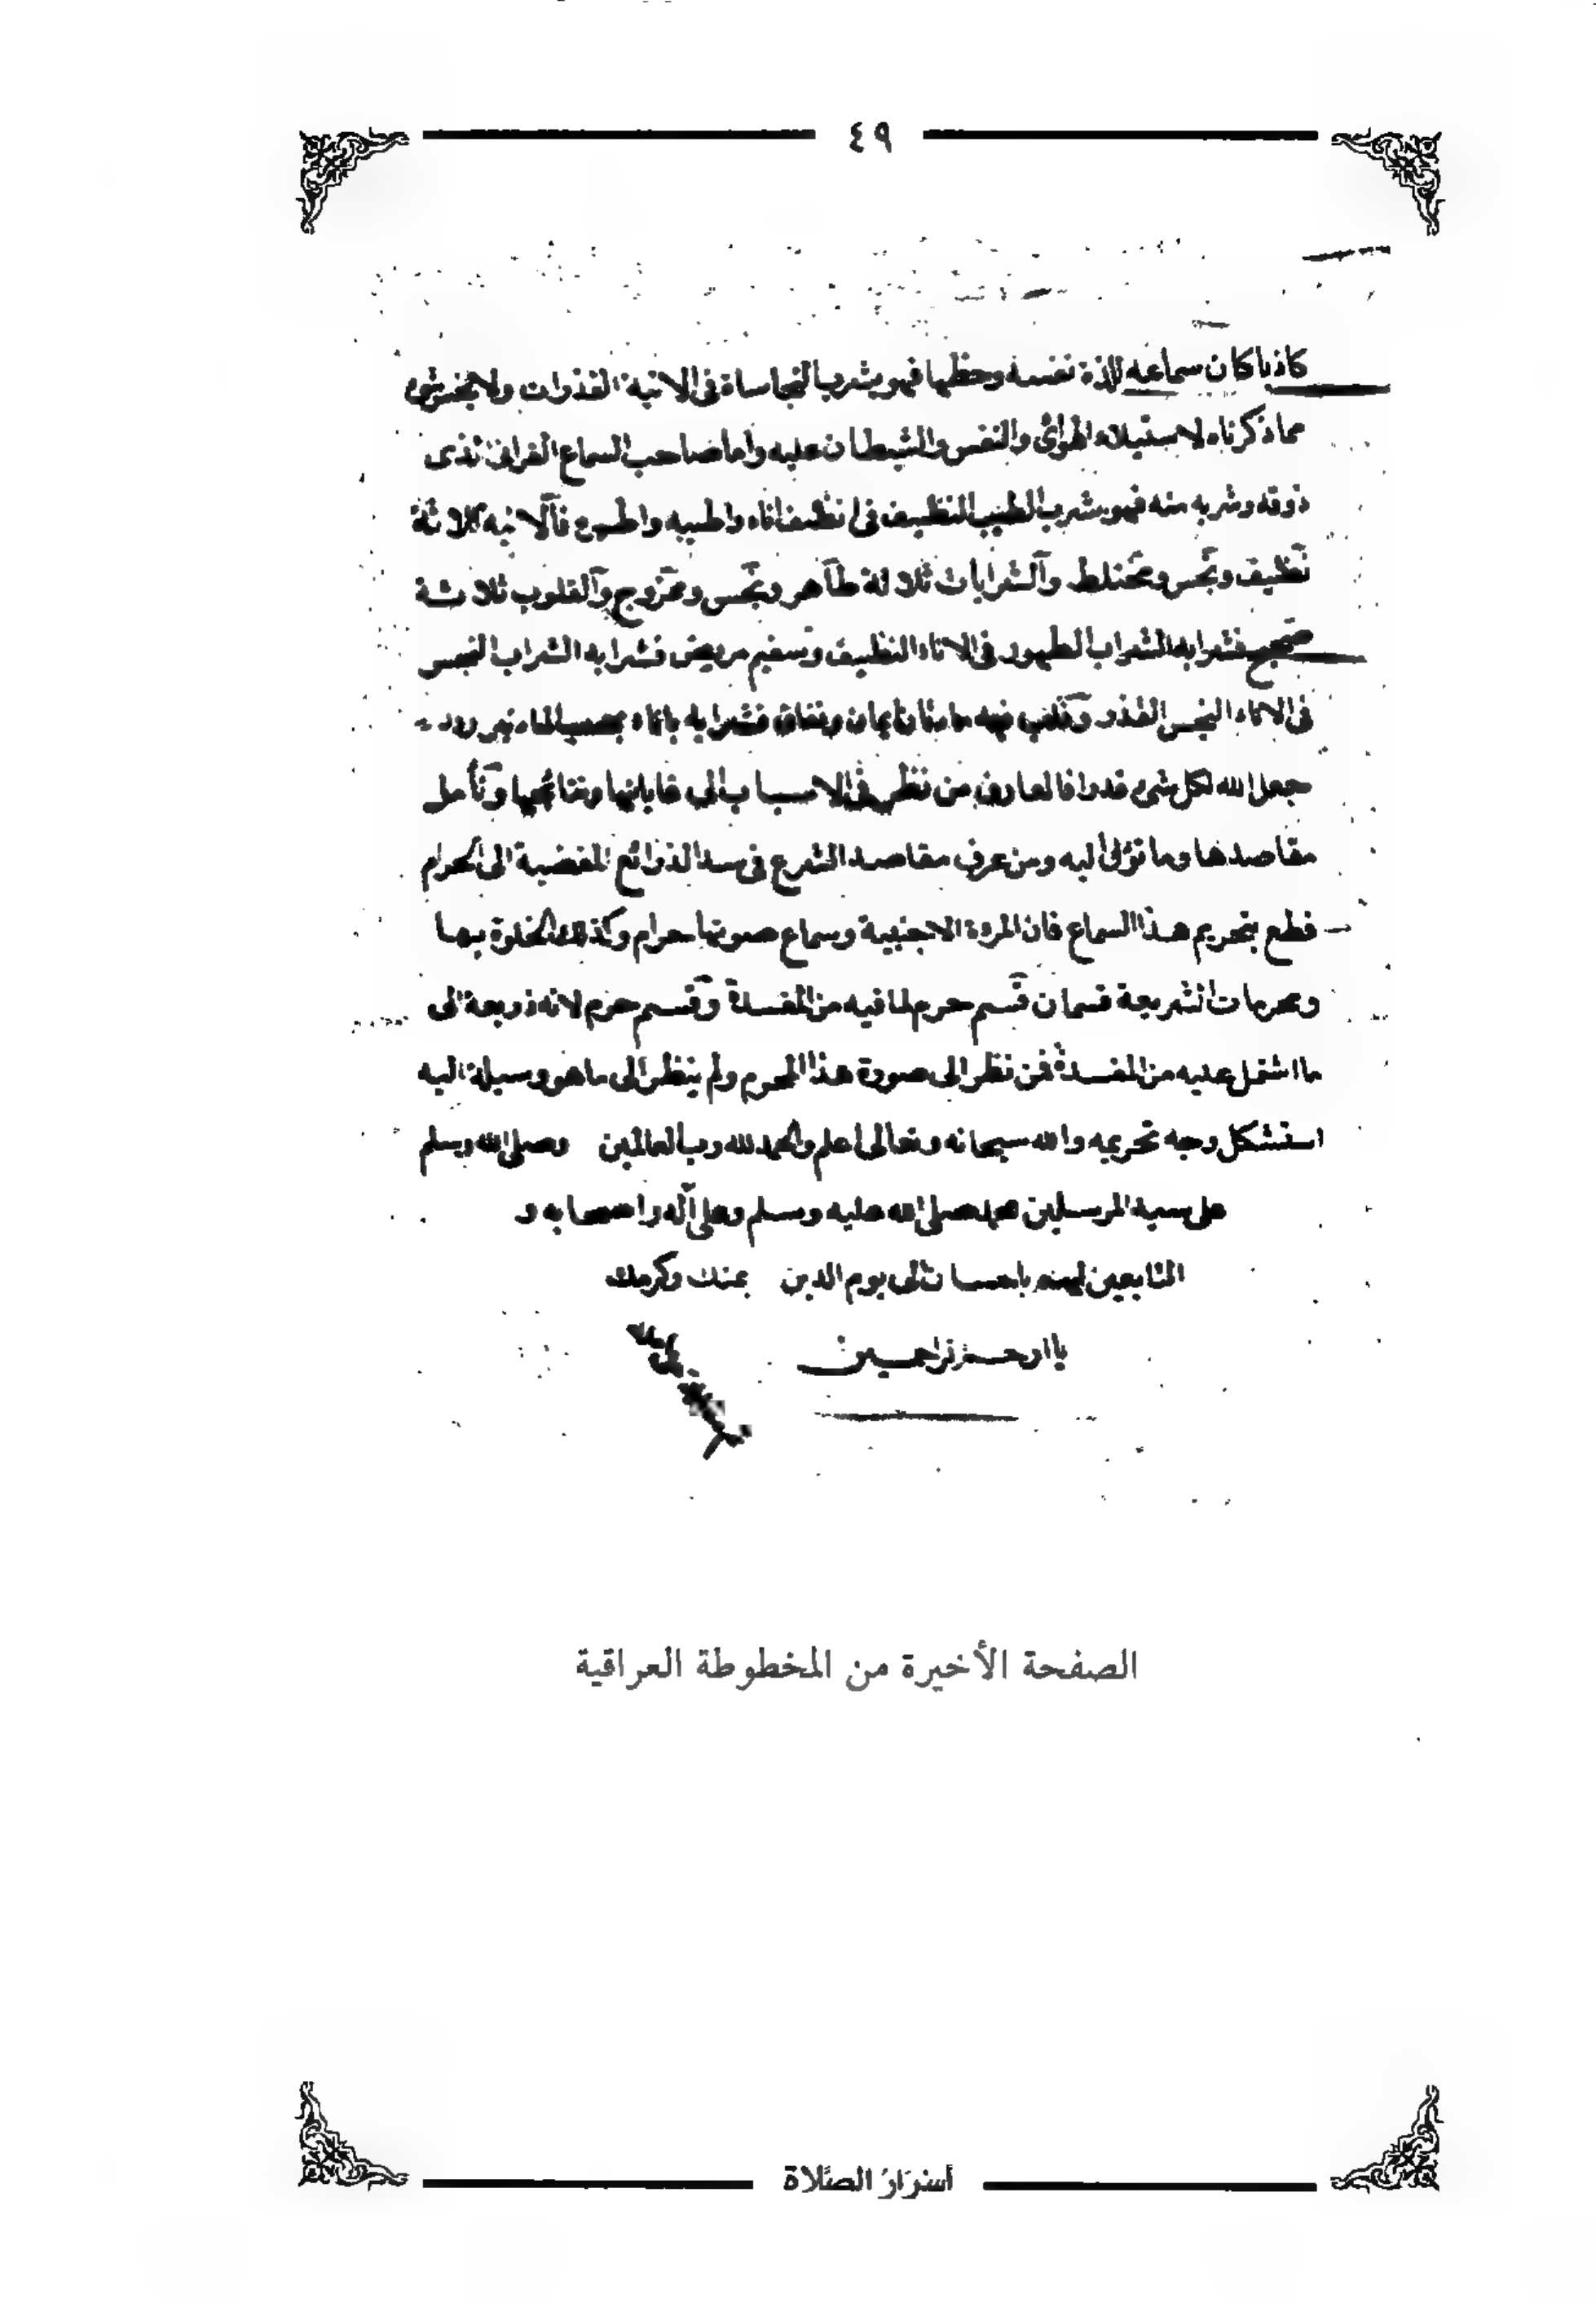 ٤٩
كاذبا كان سماعه للذة نفسه وحظها فهو يشرب النجاسات في الآنية القذرات ولا يحس بشيء
مما ذكرناه لاستيلاء الهوى والنفس والشيطان عليه وأما صاحب السماع القرآني الذي
ذوقه وشربه منه فهو يشرب الطيب النظيف في انظف اناء واطيبه واطهره فالآنية ثلاثة
نظيف ونجس ومختلط والشرابات ثلاثة طاهر ونجس وممزوج والقلوب ثلاثة
صحيح فشرابه الشراب الطهور في الاناء النظيف وسقيم مريض فشرابه الشراب النجس
في الاناء النجس القذر وقلب فيه مادتان ايمان ونفاق فشرابه باناء بحسب المادتين وقد
جعل الله لكل شيء قدرا فالعارف من نظر في الاسباب الى غاياتها ونتائجها وتأمل
مقاصدها وما تؤل اليه ومن عرف مقاصد الشرع في سد الذرائع المفضية الى الحرام
قطع بتحريم هذا السماع فان المرءة الاجنبية وسماع صوتها حرام وكذلك الخلوة بها
ومحرمات الشريعة قسمان قسم حرم لما فيه من المفسدة وقسم حرم لانه ذريعة الى
ما اشتمل عليه من المفسدة فمن نظر الى صورة هذا المحرم ولم ينظر الى ما هو وسيلة اليه
استشكل وجه تحريمه والله سبحانه وتعالى اعلم والحمد لله رب العالمين وصلى الله وسلم
على سيد المرسلين محمد صلى الله عليه وسلم وعلى آله واصحابه و
التابعين لهم باحسان الى يوم الدين بمنك وكرمك
يا ارحم الراحمين
الصفحة الأخيرة من المخطوطة العراقية
أسرار الصلاة